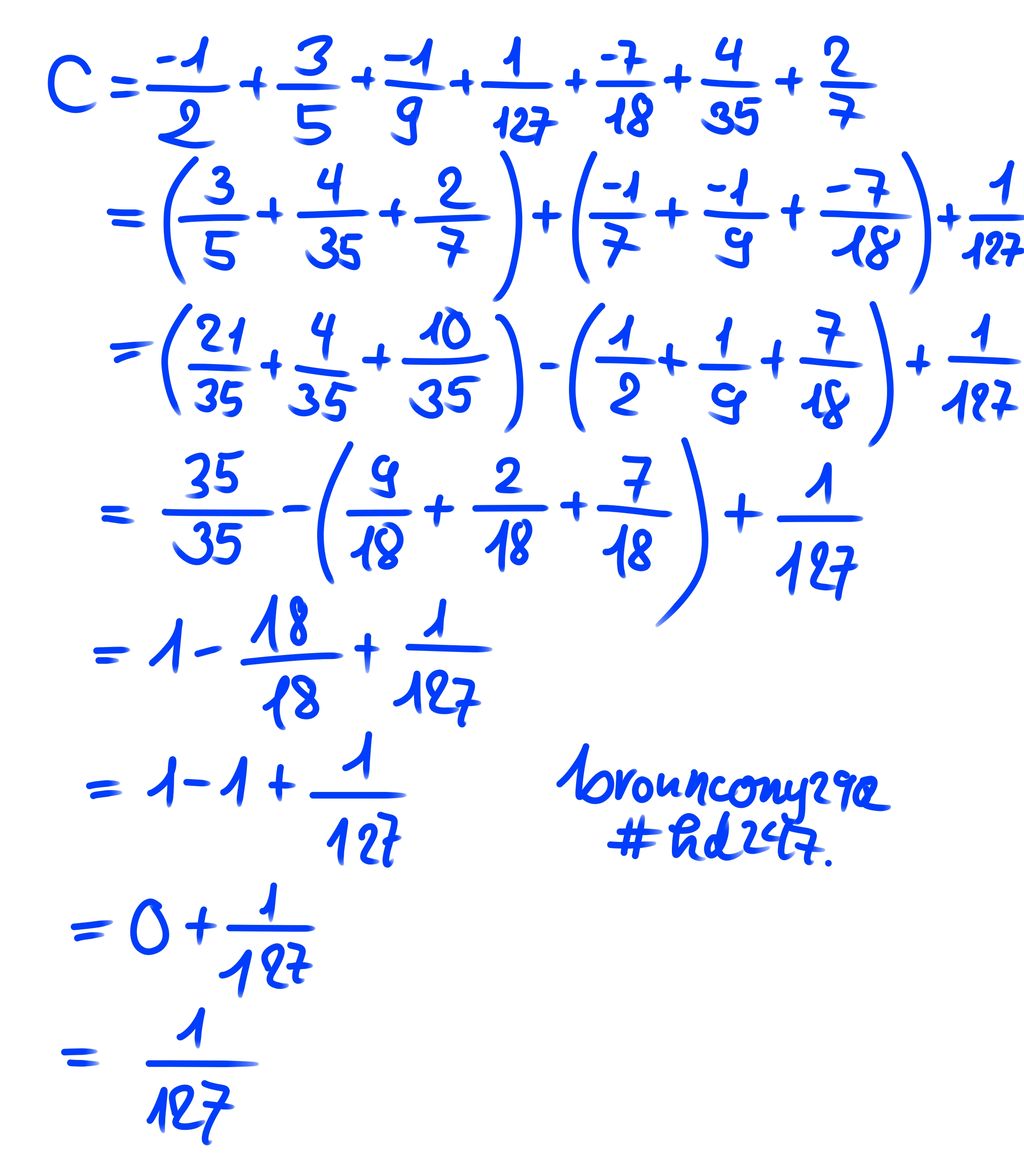 C = -1/2 + 3/5 + -1/9 + 1/127 + -7/18 + 4/35 + 2/7
= (3/5 + 4/35 + 2/7) + (-1/7 + -1/9 + -7/18) + 1/127
= (21/35 + 4/35 + 10/35) - (1/2 + 1/9 + 7/18) + 1/127
= 35/35 - (9/18 + 2/18 + 7/18) + 1/127
= 1 - 18/18 + 1/127
= 1 - 1 + 1/127
= 0 + 1/127
= 1/127
#hd247.